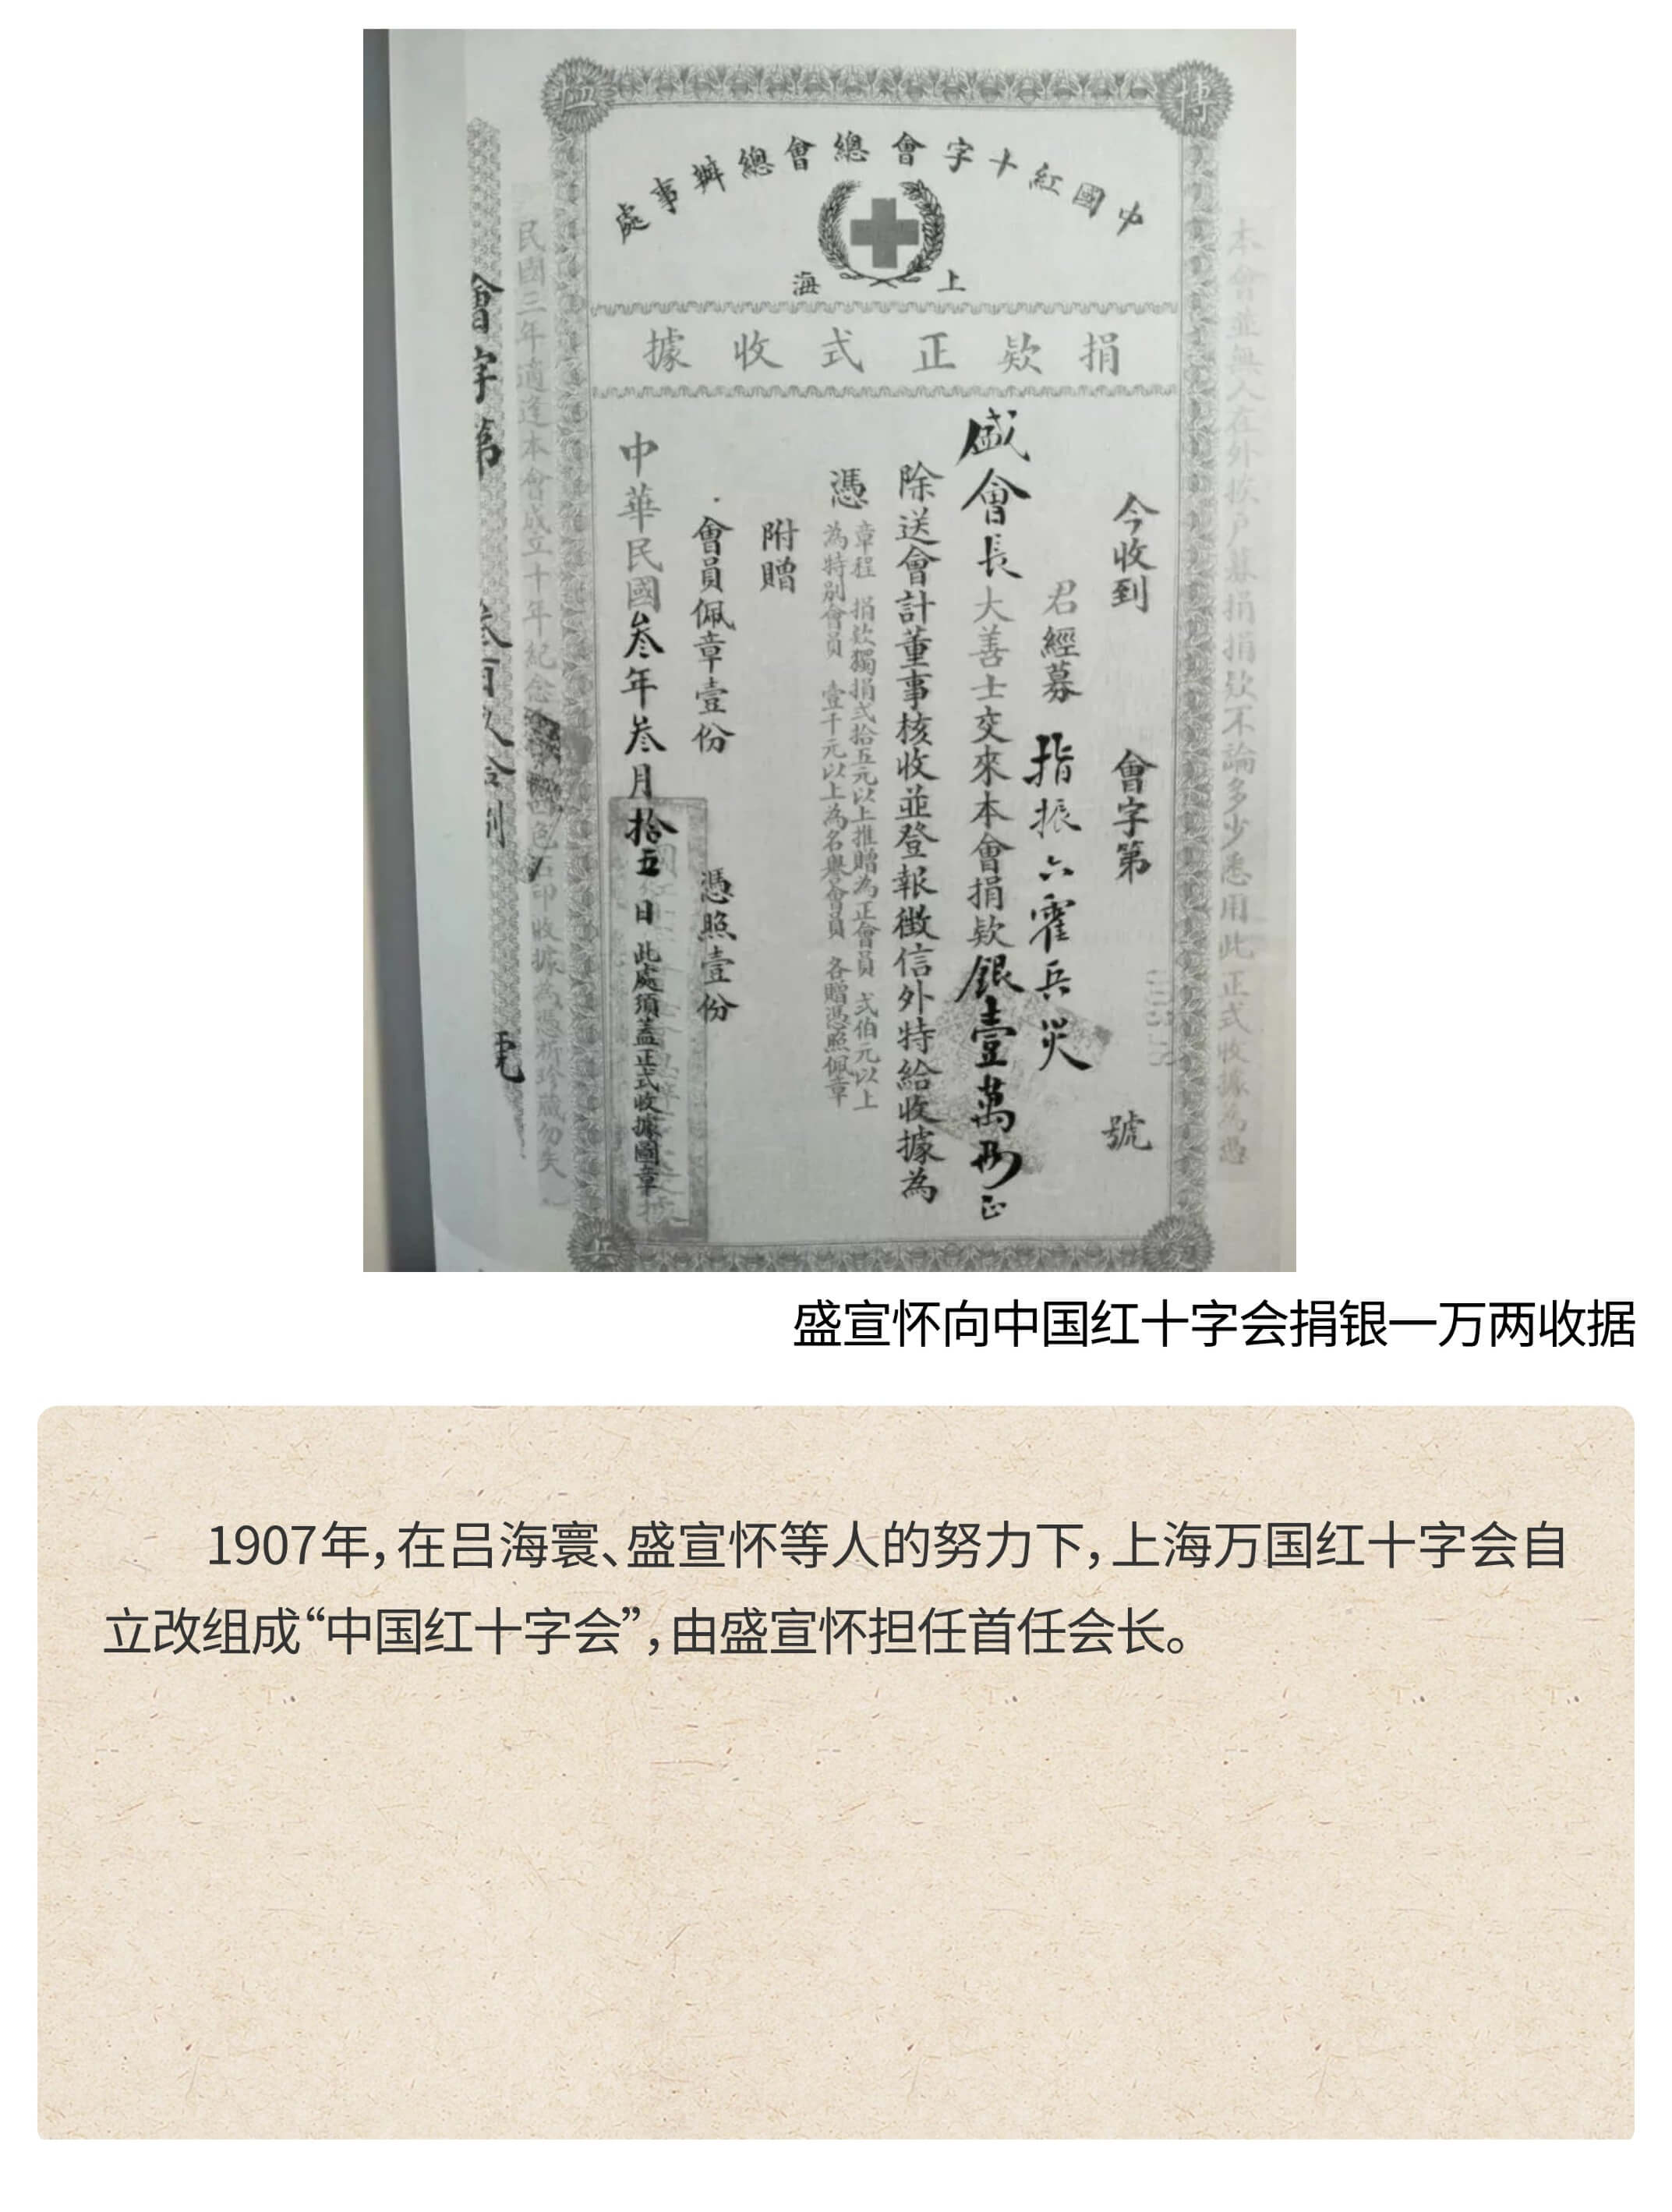 中國紅十字會總會總辦事處
上海
捐欵正式收據
本會並無人在外挨戶募捐捐欵不論多少悉用此正式收據為憑
今收到 會字第 號
君經募 指振六霍兵災
盛會長大善士交來本會捐欵銀壹萬兩正
除送會計董事核收並登報徵信外特給收據為
憑
章程 捐欵獨捐弍拾五元以上推贈為正會員 弍伯元以上
為特別會員 壹千元以上為名譽會員 各贈憑照佩章
附贈
會員佩章壹份 憑照壹份
中華民國叁年叁月拾五日 此處須蓋正式收據圖章
民國三年適逢本會成立十年紀念 四色石印收據為憑祈珍藏勿失
會字第 號
盛宣怀向中国红十字会捐银一万两收据
1907年，在吕海寰、盛宣怀等人的努力下，上海万国红十字会自
立改组成“中国红十字会”，由盛宣怀担任首任会长。